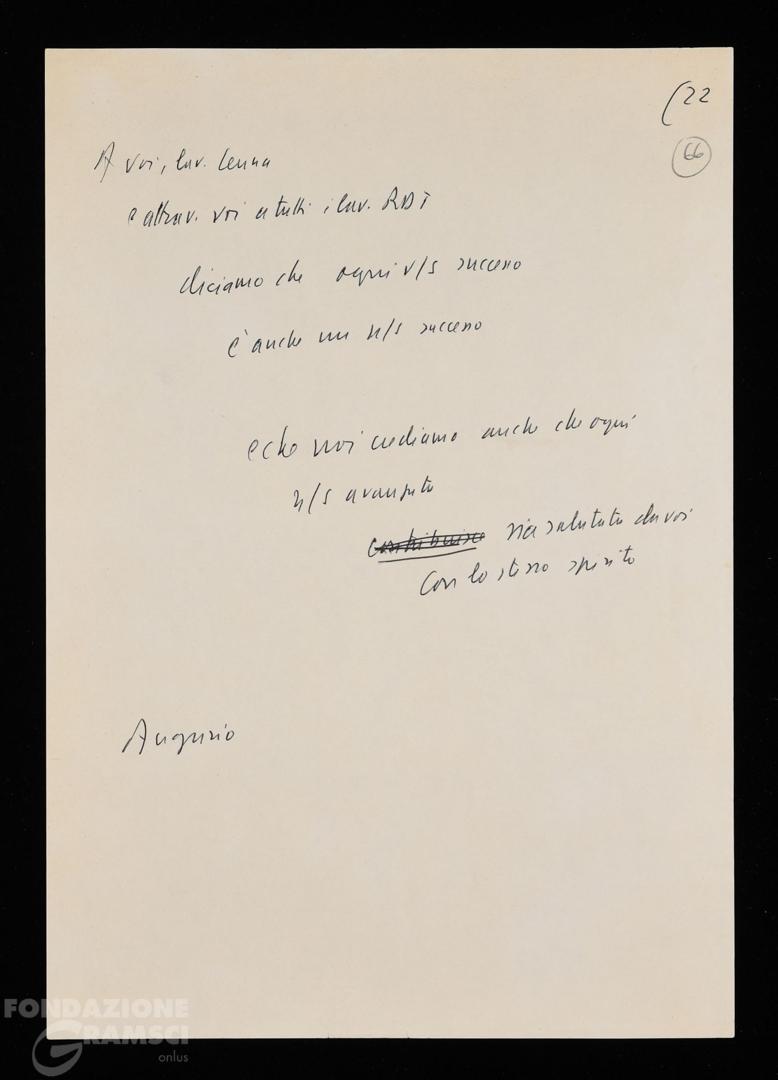 (22
66
A voi, lav. Leuna
e attrav. voi a tutti i lav. RDT
diciamo che ogni v/s successo
è anche un n/s successo
e che noi crediamo anche che ogni
n/s avanzata
contribuisce sia salutata da voi
con lo stesso spirito
Augurio
FONDAZIONE
GRAMSCI
onlus